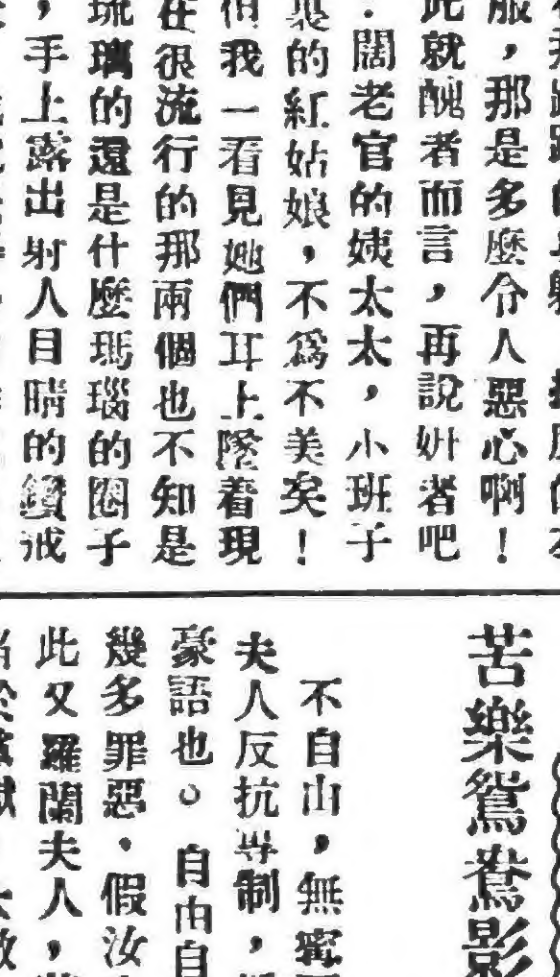 服，那是多麼令人惡心啊！
此就醜者而言，再說姸者吧
．闊老官的姨太太，小班子
裏的紅姑娘，不爲不美矣！
但我一看見她們耳上墜着現
在很流行的那兩個也不知是
琉璃的還是什麼瑪瑙的圈子
，手上露出射人目睛的鑽戒
苦樂鴛鴦影
不自由，無寗
夫人反抗專制，
豪語也。自由自
幾多罪惡．假汝
此又羅蘭夫人，